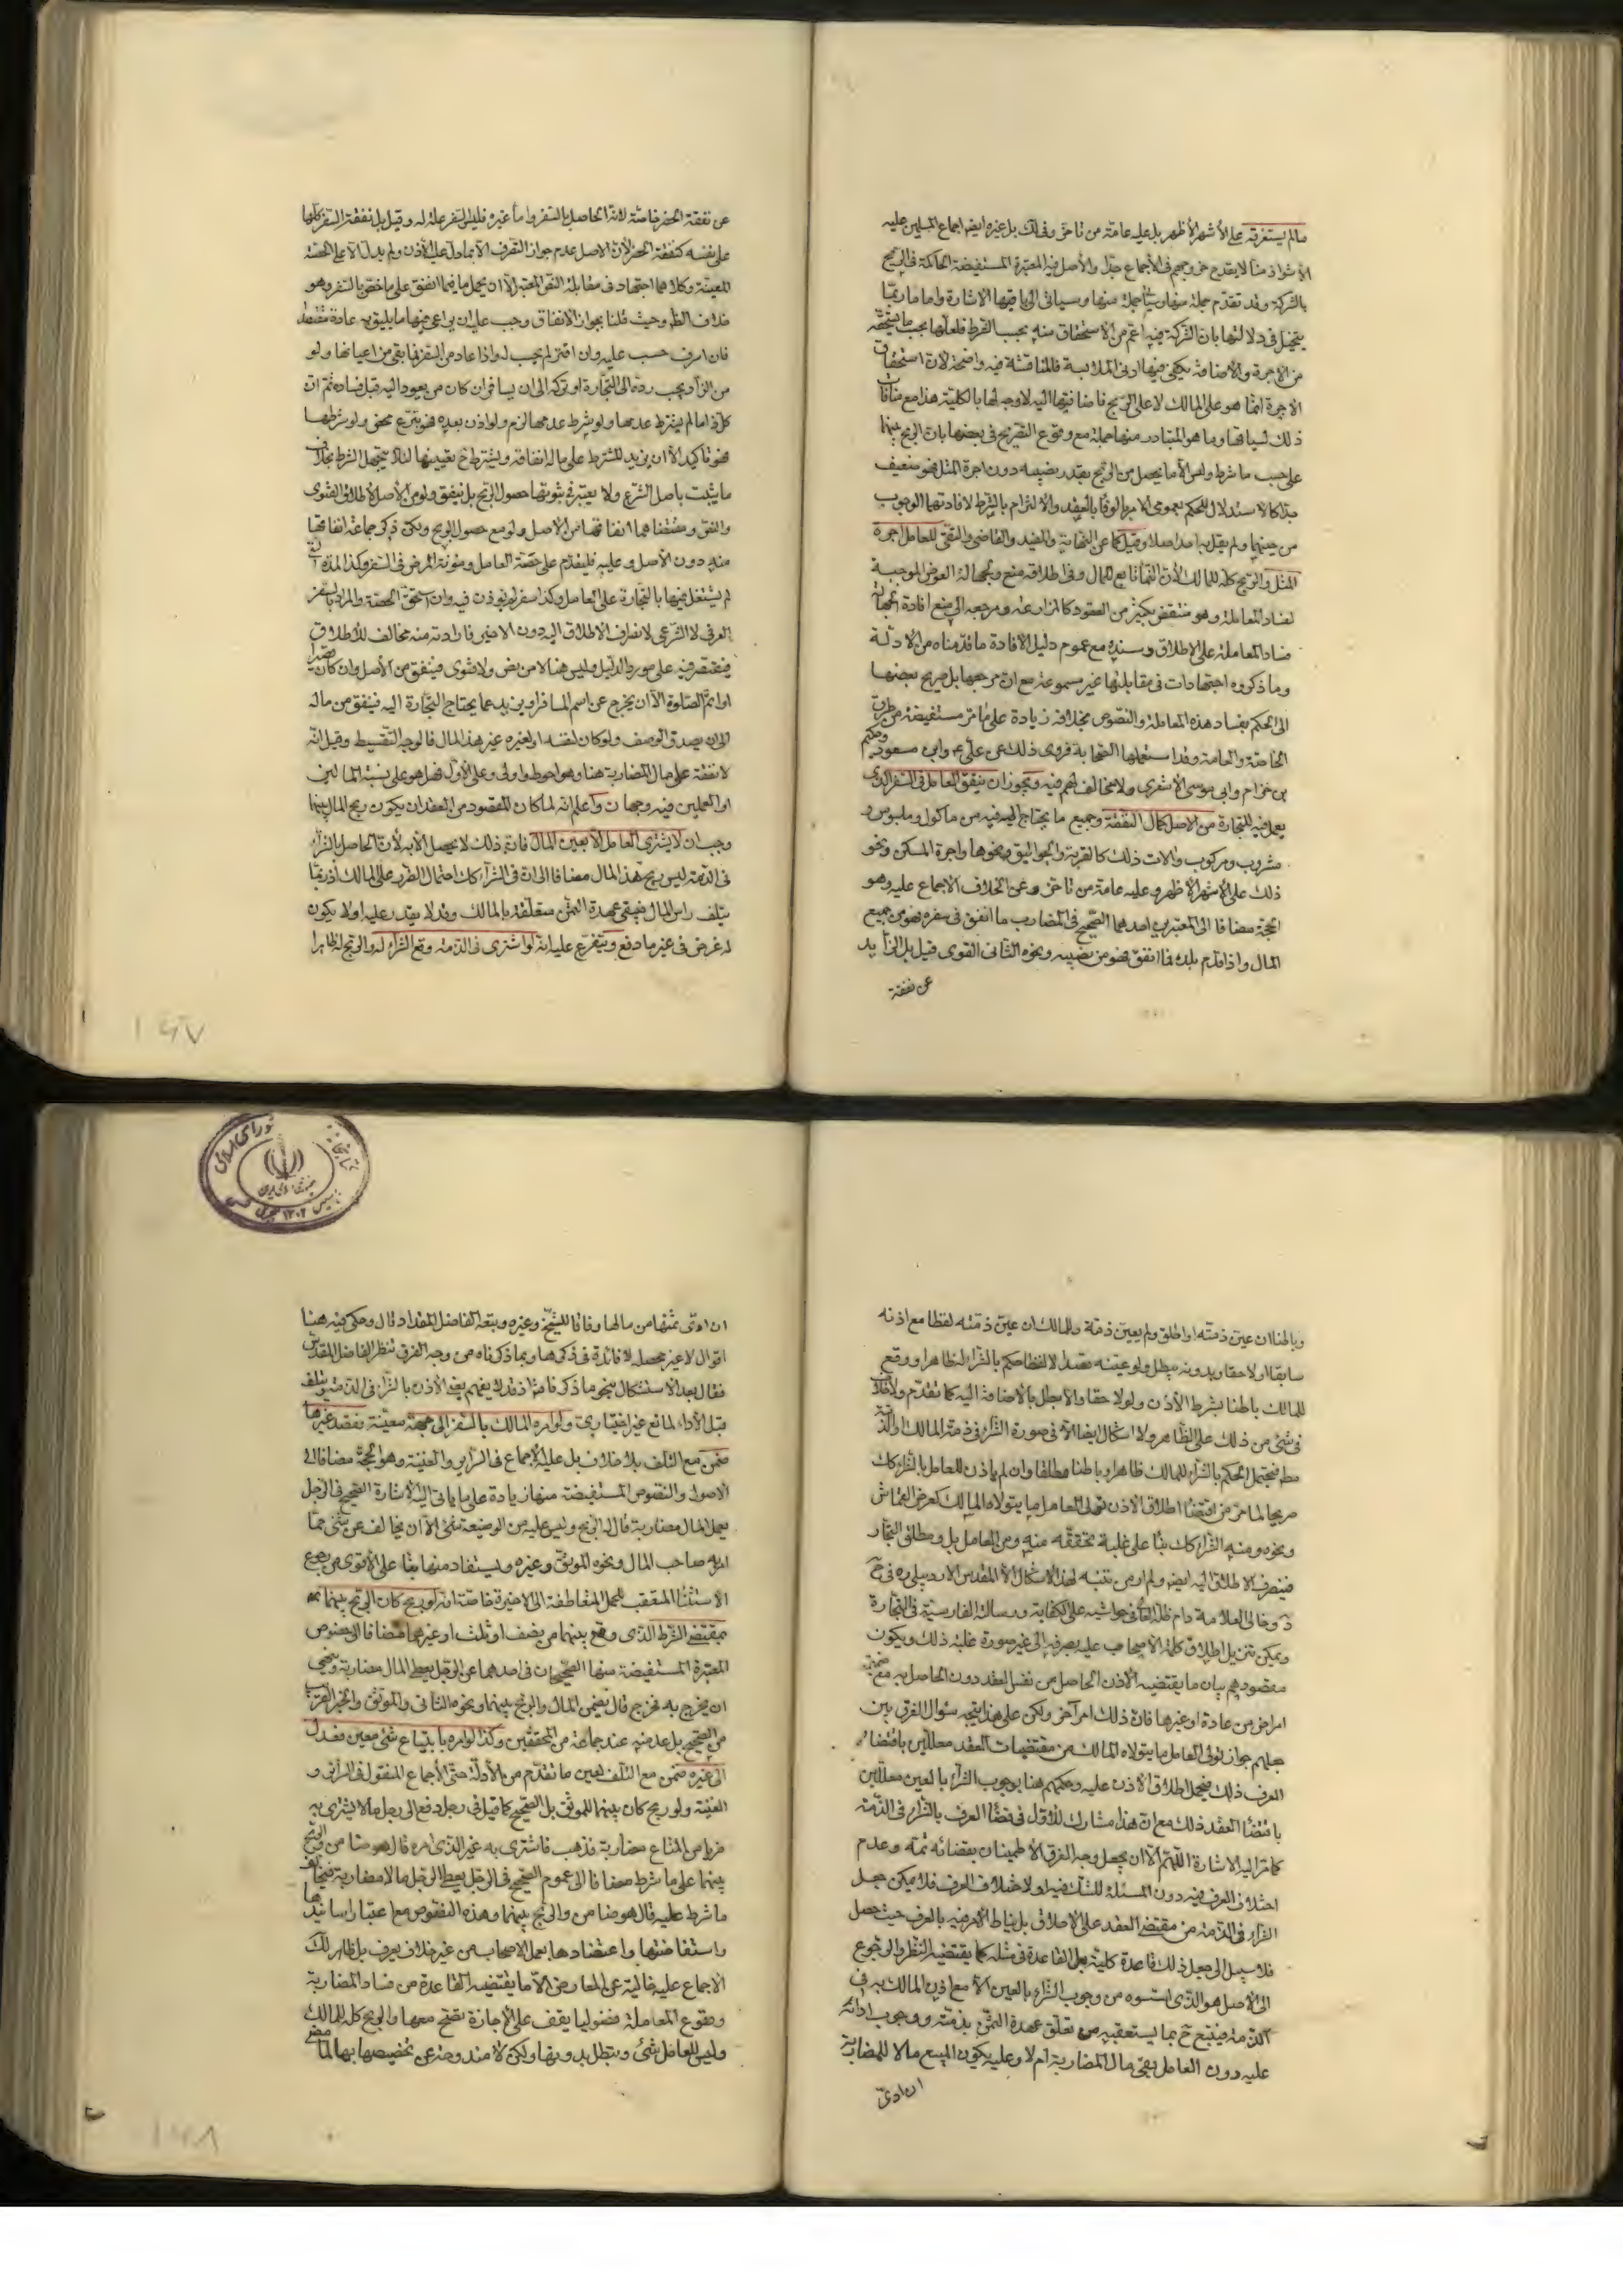 مالم يستغرقه على الأشهر الأظهر بل عليه عامة من تأخر وفى لك بل غيره ايضا اجماع المسلمين عليه
الا شواذ منا لا يقدح خروجهم فى الاجماع جدا والأصل فيه المعتبرة المستفيضة الحاكمة فى الربح
بالشركة وقد تقدم جملة منها وسيأتى الى باقيها الاشارة واما ما ربما
يتخيل فى دلالتها بان الشركة فيه اعم من الاستحقاق منه بحسب الشرط فلعلها بحسب ما يستحقه
من الاجرة والاضافة يكفى فيها ادنى الملابسة فالمناقشة فيه واضحة لان استحقاق
الاجرة انما هو على المالك لا على الربح فاضافتها اليه لا وجه لها بالكلية هذا مع منافاة
ذلك لسياقها وما هو المتبادر منها جملة مع وقوع التصريح فى بعضها بان الربح بينهما
على حسب ما شرط وليس الا ما يحصل من الربح بقدر نصيبه دون اجرة المثل فهو ضعيف
جدا كالاستدلال للحكم بعموم الامر بالوفاء بالعقد والالتزام بالشرط لافادتهما الوجوب
من حينهما ولم يقل به احد اصلا وقيل كما عن النهاية والمفيد والقاضى والتقى للعامل اجرة
المثل والربح كله للمالك لأن النماء تابع للمال وفى اطلاقه منع ولجهالة العوض الموجبة
لفساد المعاملة وهو منتقض بكثير من العقود كالمزارعة ومرجعه الى منع افادة الجهالة
فساد المعاملة على الاطلاق وسنده مع عموم دليل الافادة ما قدمناه من الادلة
وما ذكروه اجتهادات فى مقابلتها غير مسموعة مع ان مرجعها بل صريح بعضها
الى الحكم بفساد هذه المعاملة والنصوص بخلافه زيادة على ما مر مستفيضة من طرق
الخاصة والعامة وقد استعملها الصحابة فروى ذلك عن على ع وابى مسعود وحكيم
بن حزام وابى موسى الاشعرى ولا مخالف لهم فيه ويجوز ان ينفق العامل فى السفر الذى
يعمل فيه للتجارة من الاصل كمال النفقة وجميع ما يحتاج اليه فيه من مأكول وملبوس و
مشروب ومركوب والات ذلك كالقربة والجواليق ونحوها واجرة المسكن ونحو
ذلك على الاشهر الاظهر وعليه عامة من تأخر وعن الخلاف الاجماع عليه وهو
الحجة مضافا الى المعتبرين احدهما الصحيح فى المضارب ما انفق فى سفره فهو من جميع
المال واذا قدم بلده فما انفق فهو من نصيبه ونحوه الثانى القوى قيل بل الزايد
عن نفقة
عن نفقة الحضر خاصة لانه الحاصل بالسفر واما غيره فليس السفر علة له وقيل بل نفقة السفر كلها
على نفسه كنفقة الحضر لأن الاصل عدم جواز التصرف الا بما دل عليه الأذن ولم يدل الا على الحصة
المعينة وكلاهما اجتهاد فى مقابلة النص المعتبر الا ان يحمل ما فيهما انفق على ما خص بالسفر وهو
خلاف الظ وحيث قلنا بجواز الانفاق وجب عليه ان يراعى فيها ما يليق به عادة مقتصدا
فان اسرف حسب عليه وان اقتر لم يحسب له واذا عاد من السفر فما بقى من اعيانها ولو
من الزاد يجب رده الى التجارة او تركه الى ان يسافر ان كان ممن يعود اليه قبل فساده ثم ان
كل ذا ما لم يشترط عدمها ولو شرط عدمها لزم ولو اذن بعده فهو تبرع محض ولو شرطها
فهو تأكيد الا ان يزيد للشرط على ماله انفاقه ويشترط ح تعيينها لئلا يتجهل الشرط بخلاف
ما يثبت باصل الشرع ولا يعتبر فى ثبوتها حصول الربح بل ينفق ولو من الاصل لأطلاق الفتوى
والنص ومقتضاهما انفاقها من الاصل ولو مع حصول الربح ولكن ذكر جماعة انفاقها
منه دون الأصل وعليه فليقدم على حصة العامل ومؤنة المرض فى السفر وكذا المدة التى
لم يشتغل فيها بالتجارة على العامل وكذا سفر لم يؤذن فيه وان استحق الحصة والمراد بالسفر
العرفى لا الشرعى لانصراف الاطلاق اليه دون الاخير فارادته منه مخالف للاطلاق
فيقتصر فيه على مورد الدليل وليس هنا لا من نص ولا فتوى فينفق من الأصل وان كان قصيرا
او اتم الصلوة الا ان يخرج عن اسم المسافر او يزيد عما يحتاج التجارة اليه فينفق من ماله
الى ان يصدق الوصف ولو كان لنفسه او لغيره غير هذا المال فالوجه التقسيط وقيل انه
لا نفقة على مال المضاربة هنا وهو احوط واولى وعلى الأول فهل هو على نسبة المالين
او العملين فيه وجهان واعلم انه لما كان المقصود من العقد ان يكون ربح المال بينهما
وجب ان لا يشترى العامل الا بعين المال فان ذلك لا يحصل الا به لأن الحاصل بالشراء
فى الذمة ليس ربح هذا المال مضافا الى ان فى الشراء كك احتمال الضرر على المالك اذ ربما
يتلف راس المال فيبقى عهدة الثمن متعلقة بالمالك وقد لا يقدر عليه او لا يكون
له غرض فى غير ما دفع ويتفرع عليه انه لو اشترى فى الذمة وقع الشراء له والربح له ظاهرا
وباطنا ان عين ذمته او اطلق ولم يعين ذمة وللمالك ان عين ذمته لفظا مع اذنه
سابقا او لاحقا وبدونه يبطل ولو عينه قصدا لا لفظا حكم بالشراء له ظاهرا ووقع
للمالك باطنا بشرط الأذن ولو لاحقا والا بطل بالاضافة اليه كما تقدم ولا خلاف
فى شئ من ذلك على الظاهر ولا اشكال ايضا الا فى صورة الشراء فى ذمة المالك او الذمة
مط فيحتمل الحكم بالشراء للمالك ظاهرا وباطنا مطلقا وان لم ياذن للعامل بالشراء كك
صريحا لما مر من اقتضاء اطلاق الاذن تولى العامل ما يتولاه المالك كعرض القماش
ونحوه ومنه الشراء كك بناء على غلبة تحققه منه ومن العامل بل ومطلق التجار
فينصرف الاطلاق اليه ايضا ولم ار من تنبه لهذا الاشكال الا المقدس الاردبيلى ره فى ح
د وخالى العلامة دام ظله العالى فى حواشيه على الكفاية ورسالته الفارسية فى التجارة
ويمكن تنزيل اطلاق كلمة الاصحاب عليه بصرفه الى غير صورة غلبة ذلك ويكون
مقصودهم بيان ما يقتضيه الاذن الحاصل من نفس العقد دون الحاصل به مع ضميمة
امر اخر من عادة او غيرها فان ذلك امر آخر ولكن على هذا يتجه سؤال الفرق بين
حملهم جواز تولى العامل ما يتولاه المالك من مقتضيات العقد معللين باقتضاء
العرف ذلك فيحمل اطلاق الاذن عليه وحكمهم هنا بوجوب الشراء بالعين معللين
باقتضاء العقد ذلك مع ان هذا مشارك للاول فى قضاء العرف بالشراء فى الذمة
كما مر اليه الاشارة اللهم الا ان يجعل وجه الفرق الاطمينان بقضائه ثمة وعدم
اختلاف العرف فيه دون المسئلة للشك فيها ولا ختلاف العرف فلا يمكن جعل
الشراء فى الذمة من مقتضى العقد على الاطلاق بل يناط الامر فيه بالعرف حيث حصل
فلا سبيل الى جعل ذلك قاعدة كلية بل القاعدة فى مثله كما يقتضيه النظر والرجوع
الى الاصل هو الذى اسسوه من وجوب الشراء بالعين الا مع اذن المالك به فى
الذمة فيتبع ح بما يستعقبه من تعلق عهدة الثمن بذمته ووجوب ادائه
عليه دون العامل بقى مال المضاربة ام لا وعليه يكون المبيع مالا للمضاربة
ان ادى
ان ادى ثمنها من مالها وفاقا للشيخ وغيره وتبعه الفاضل المقداد قال وحكى فيه هنا
اقوال لا غير محصله لا فائدة فى ذكرها وبما ذكرناه من وجه الفرق تنظر الفاضل المقدس
فقال بعد الاستشكال بنحو ما ذكر فاما اذ قد لا يفهم بعد الأذن بالشراء فى الذمة ويتلف
قبل الأداء لمانع غير اختيارى ولو امره المالك بالسفر الى جهة معينة فقصد غيرها
ضمن مع التلف بلا خلاف بل عليه الاجماع فى السرائر والغنية وهو الحجة مضافا الى
الاصول والنصوص المستفيضة منها زيادة على ما ياتى اليه الاشارة الصحيح فى الرجل
يعمل المال مضاربة قال له الربح وليس عليه من الوضيعة شئ الا ان يخالف عن شئ مما
امر به صاحب المال ونحوه الموثق وغيره ويستفاد منها بناء على الأقوى من رجوع
الاستثناء المتعقب للجمل المتعاطفة الى الاخيرة خاصة انه لو ربح كان الربح بينهما
بمقتضى الشرط الذى وقع بينهما من نصف او ثلث او غيرهما مضافا الى خصوص
المعتبرة المستفيضة منها الصحيحان فى احدهما عن الرجل يعطى المال مضاربة وينهى
ان يخرج به فخرج قال يضمن المال والربح بينهما ونحوه الثانى والموثق والخبر القريب
من الصحيح بل عد منه عند جماعة من المحققين وكذا لو امره بابتياع شئ معين فعدل
الى غيره ضمن مع التلف لعين ما تقدم من الأدلة حتى الأجماع المنقول فى السرائر و
الغنية ولو ربح كان بينهما للموثق بل الصحيح كما قيل فى رجل دفع الى رجل مالا يشترى به
ضربا من المتاع مضاربة فذهب فاشترى به غير الذى امره قال هو ضامن والربح
بينهما على ما شرط مضافا الى عموم الصحيح فى الرجل يعطى الرجل مالا مضاربة فيخالف
ما شرط عليه قال هو ضامن والربح بينهما وهذه النصوص مع اعتبار اسانيدها
واستفاضتها واعتضادها بعمل الاصحاب من غير خلاف يعرف بل ظاهر لك
الاجماع عليه خالية عن المعارض الا ما يقتضيه القاعدة من فساد المضاربة
ووقوع المعاملة فضوليا يقف على الاجازة تصح معها والربح كله للمالك
وليس للعامل شئ وتبطل بدونها ولكن لا مندوحة عن تخصيصها بها لما مضى
شوراى اسلامى
١٦٧
١٦٨